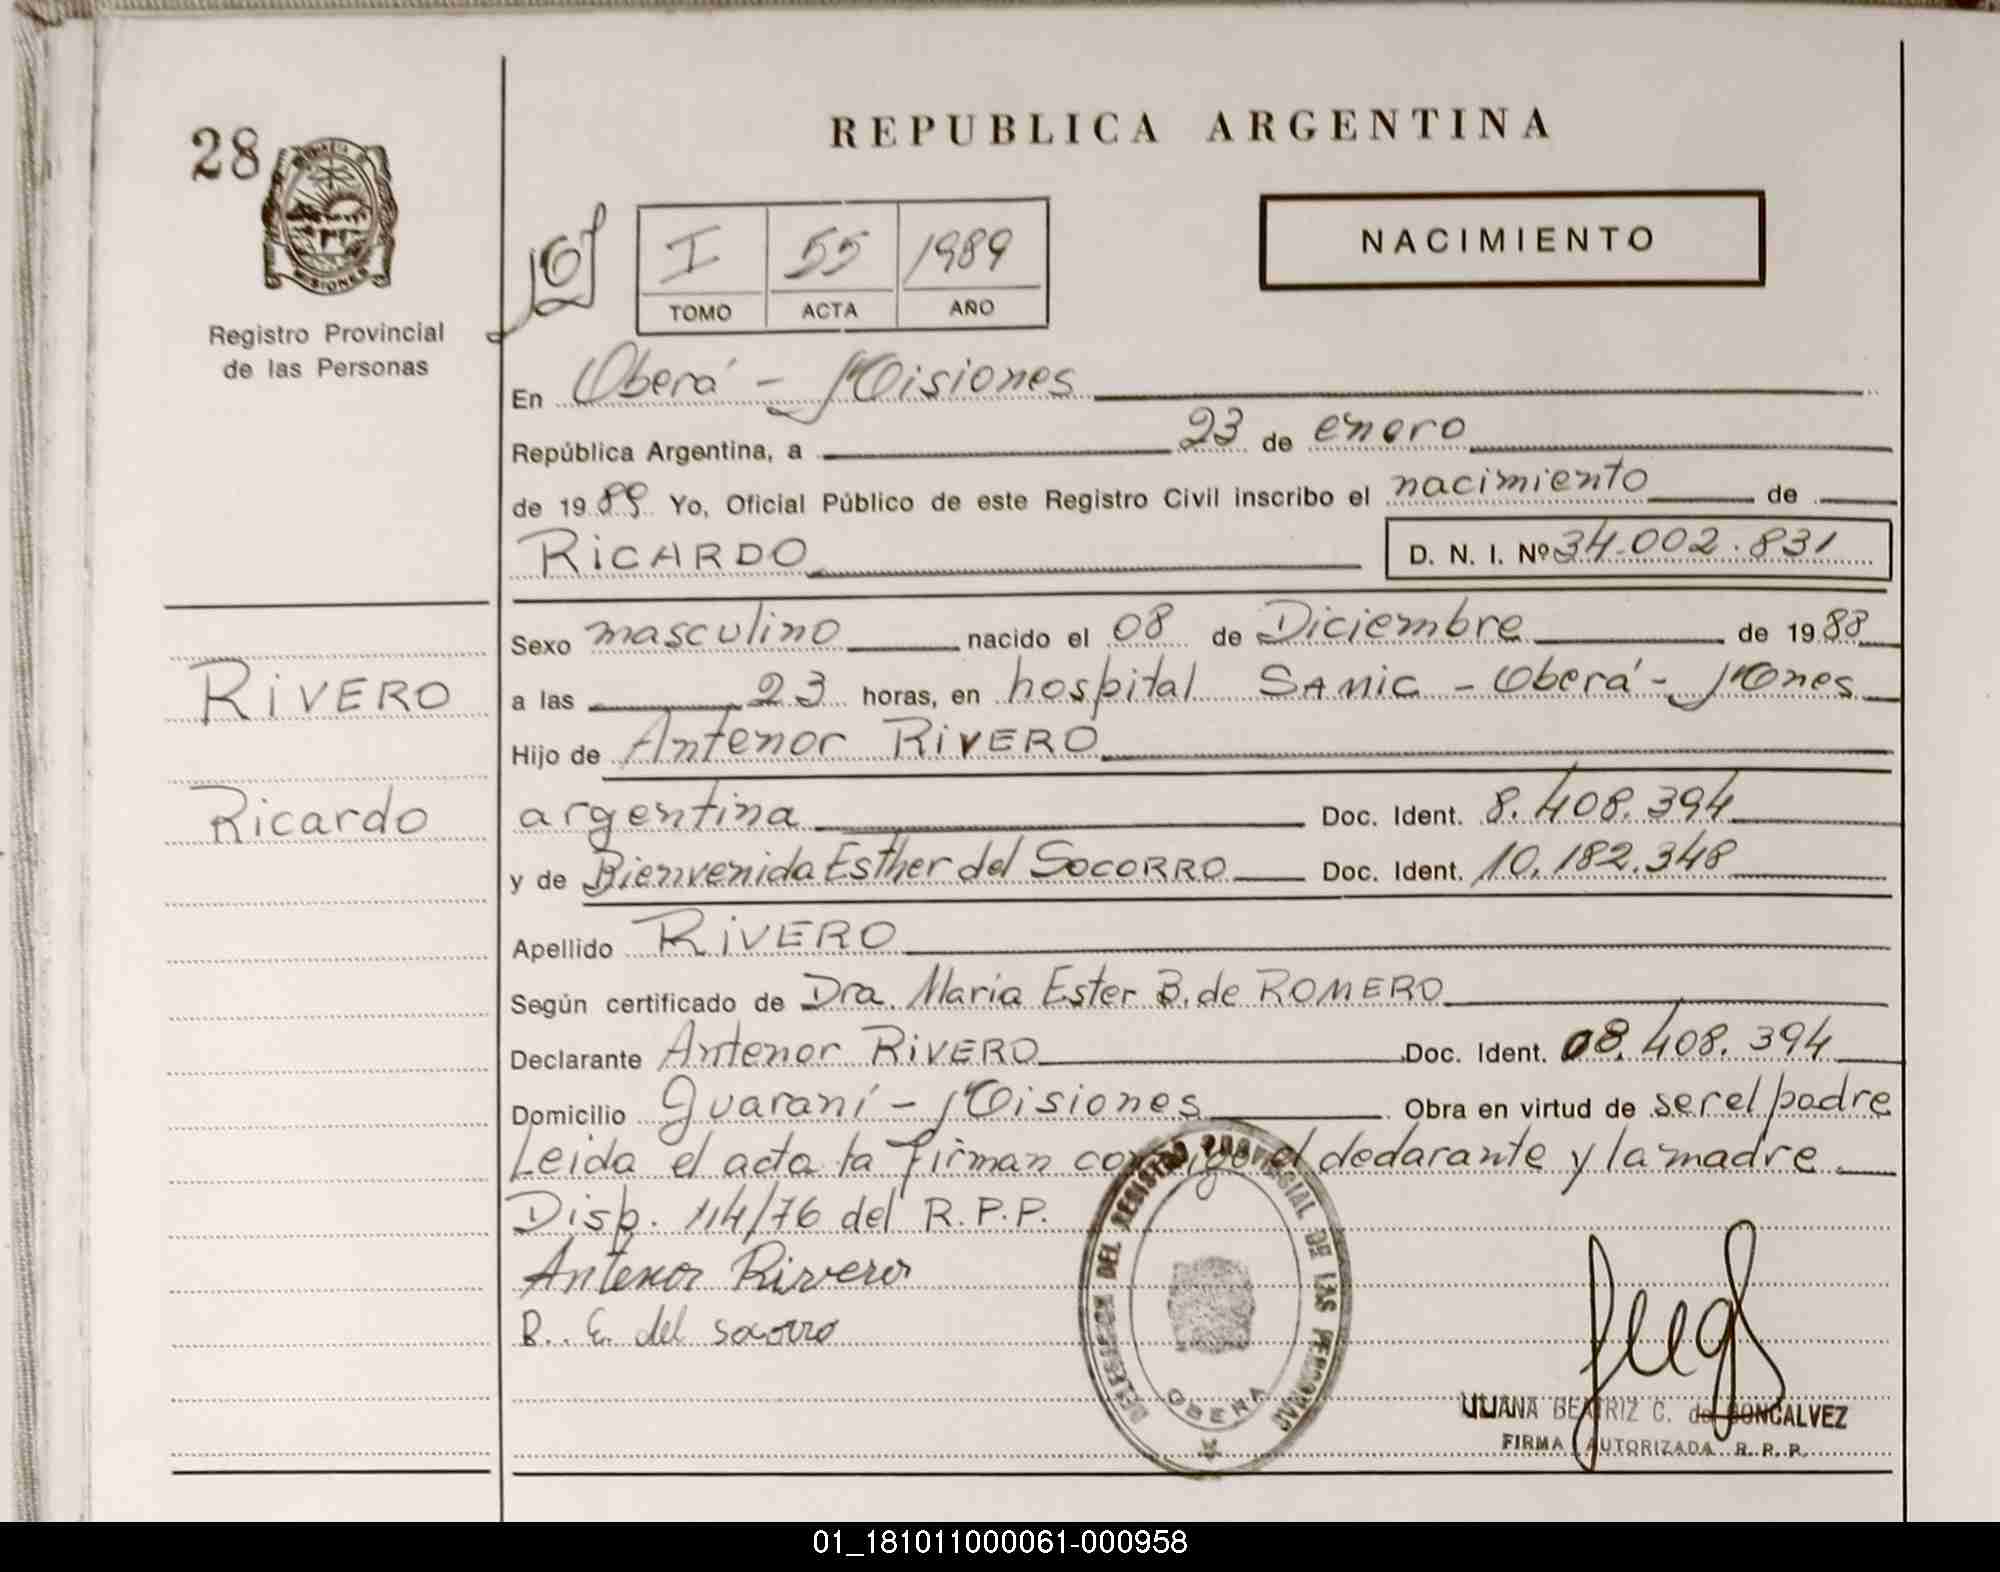 28
MISIONES
Registro Provincial
de las Personas
REPUBLICA ARGENTINA
NACIMIENTO
I 55 1989
TOMO ACTA AÑO
En Oberá - Misiones
República Argentina, a 23 de enero
de 1989 Yo, Oficial Público de este Registro Civil inscribo el nacimiento de
RICARDO D. N. I. Nº 34.002.831
Sexo masculino nacido el 08 de Diciembre de 1988
a las 23 horas, en hospital SAMIC - Oberá - Mones
Hijo de Antenor RIVERO
argentina Doc. Ident. 8.408.394
y de Bienvenida Esther del SOCORRO Doc. Ident. 10.182.348
Apellido RIVERO
Según certificado de Dra. María Ester B. de ROMERO
Declarante Antenor RIVERO Doc. Ident. 08.408.394
Domicilio Guaraní - Misiones Obra en virtud de ser el padre
Leida el acta la firman conmigo el declarante y la madre
Disp. 114/76 del R.P.P.
Antenor Rivero
B. E. del socorro
RIVERO
Ricardo
DELEGACION DEL REGISTRO PROVINCIAL DE LAS PERSONAS
OBERA
LILIANA BEATRIZ C. de GONCALVEZ
FIRMA AUTORIZADA R. P. P.
01_181011000061-000958